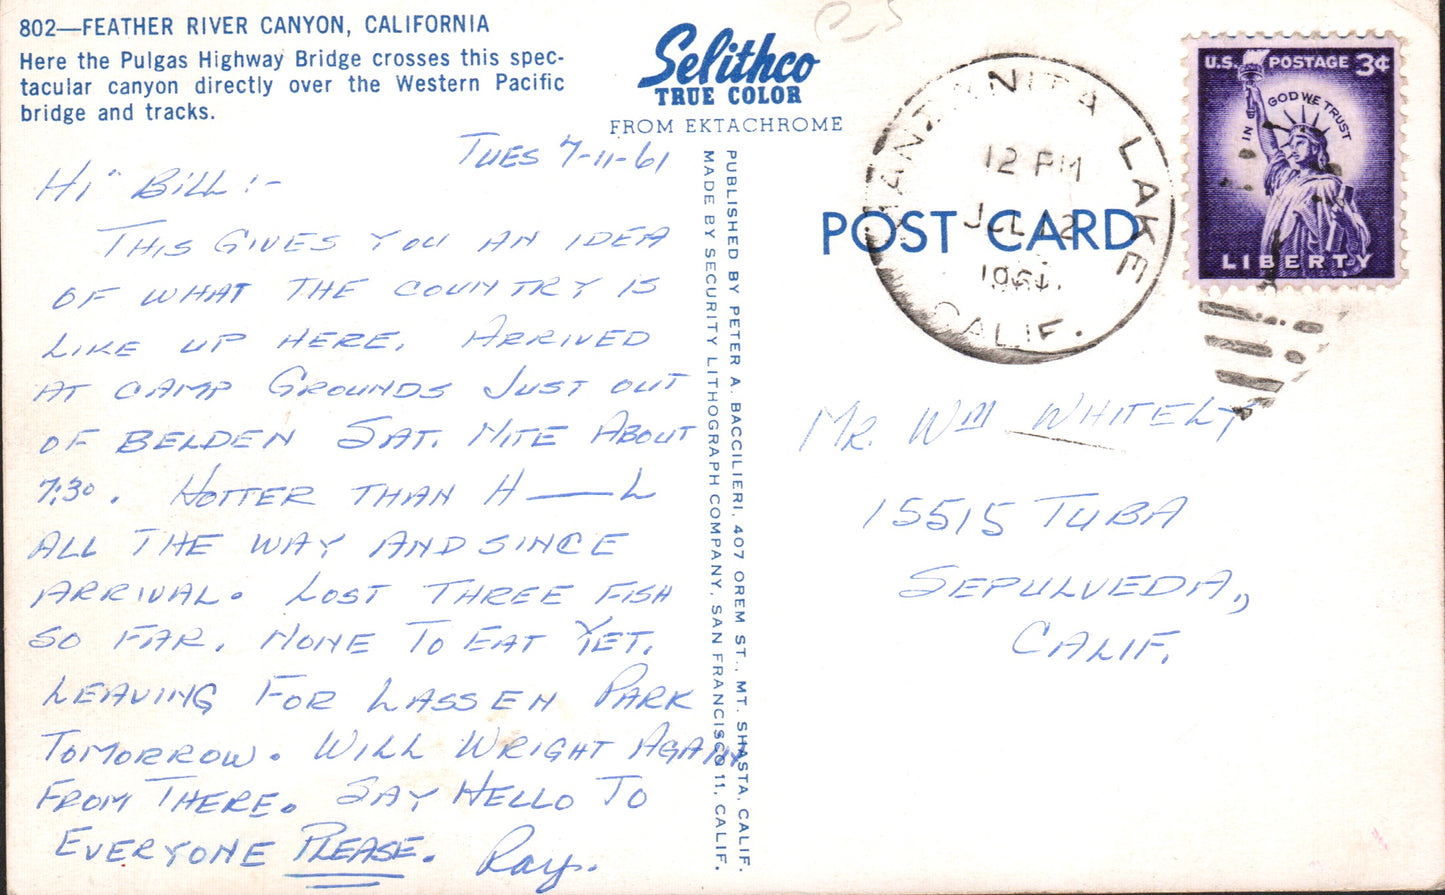 802—FEATHER RIVER CANYON, CALIFORNIA
Here the Pulgas Highway Bridge crosses this spec-
tacular canyon directly over the Western Pacific
bridge and tracks.
Selithco
TRUE COLOR
FROM EKTACHROME
TUES 7-11-61
HI" BILL:-
THIS GIVES YOU AN IDEA
OF WHAT THE COUNTRY IS
LIKE UP HERE. ARRIVED
AT CAMP GROUNDS JUST OUT
OF BELDEN SAT. NITE ABOUT
7:30. HOTTER THAN H——L
ALL THE WAY AND SINCE
ARRIVAL. LOST THREE FISH
SO FAR. NONE TO EAT YET.
LEAVING FOR LASSEN PARK
TOMORROW. WILL WRIGHT AGAIN
FROM THERE. SAY HELLO TO
EVERYONE PLEASE. Ray.
PUBLISHED BY PETER A. BACCILIERI, 407 OREM ST., MT. SHASTA, CALIF.
MADE BY SECURITY LITHOGRAPH COMPANY, SAN FRANCISCO 11, CALIF.
POST CARD
MANZANITA LAKE
12 PM
JUL 12
1961
CALIF.
U.S. POSTAGE 3¢
IN GOD WE TRUST
LIBERTY
MR. WM WHITELY
15515 TUBA
SEPULVEDA,
CALIF.